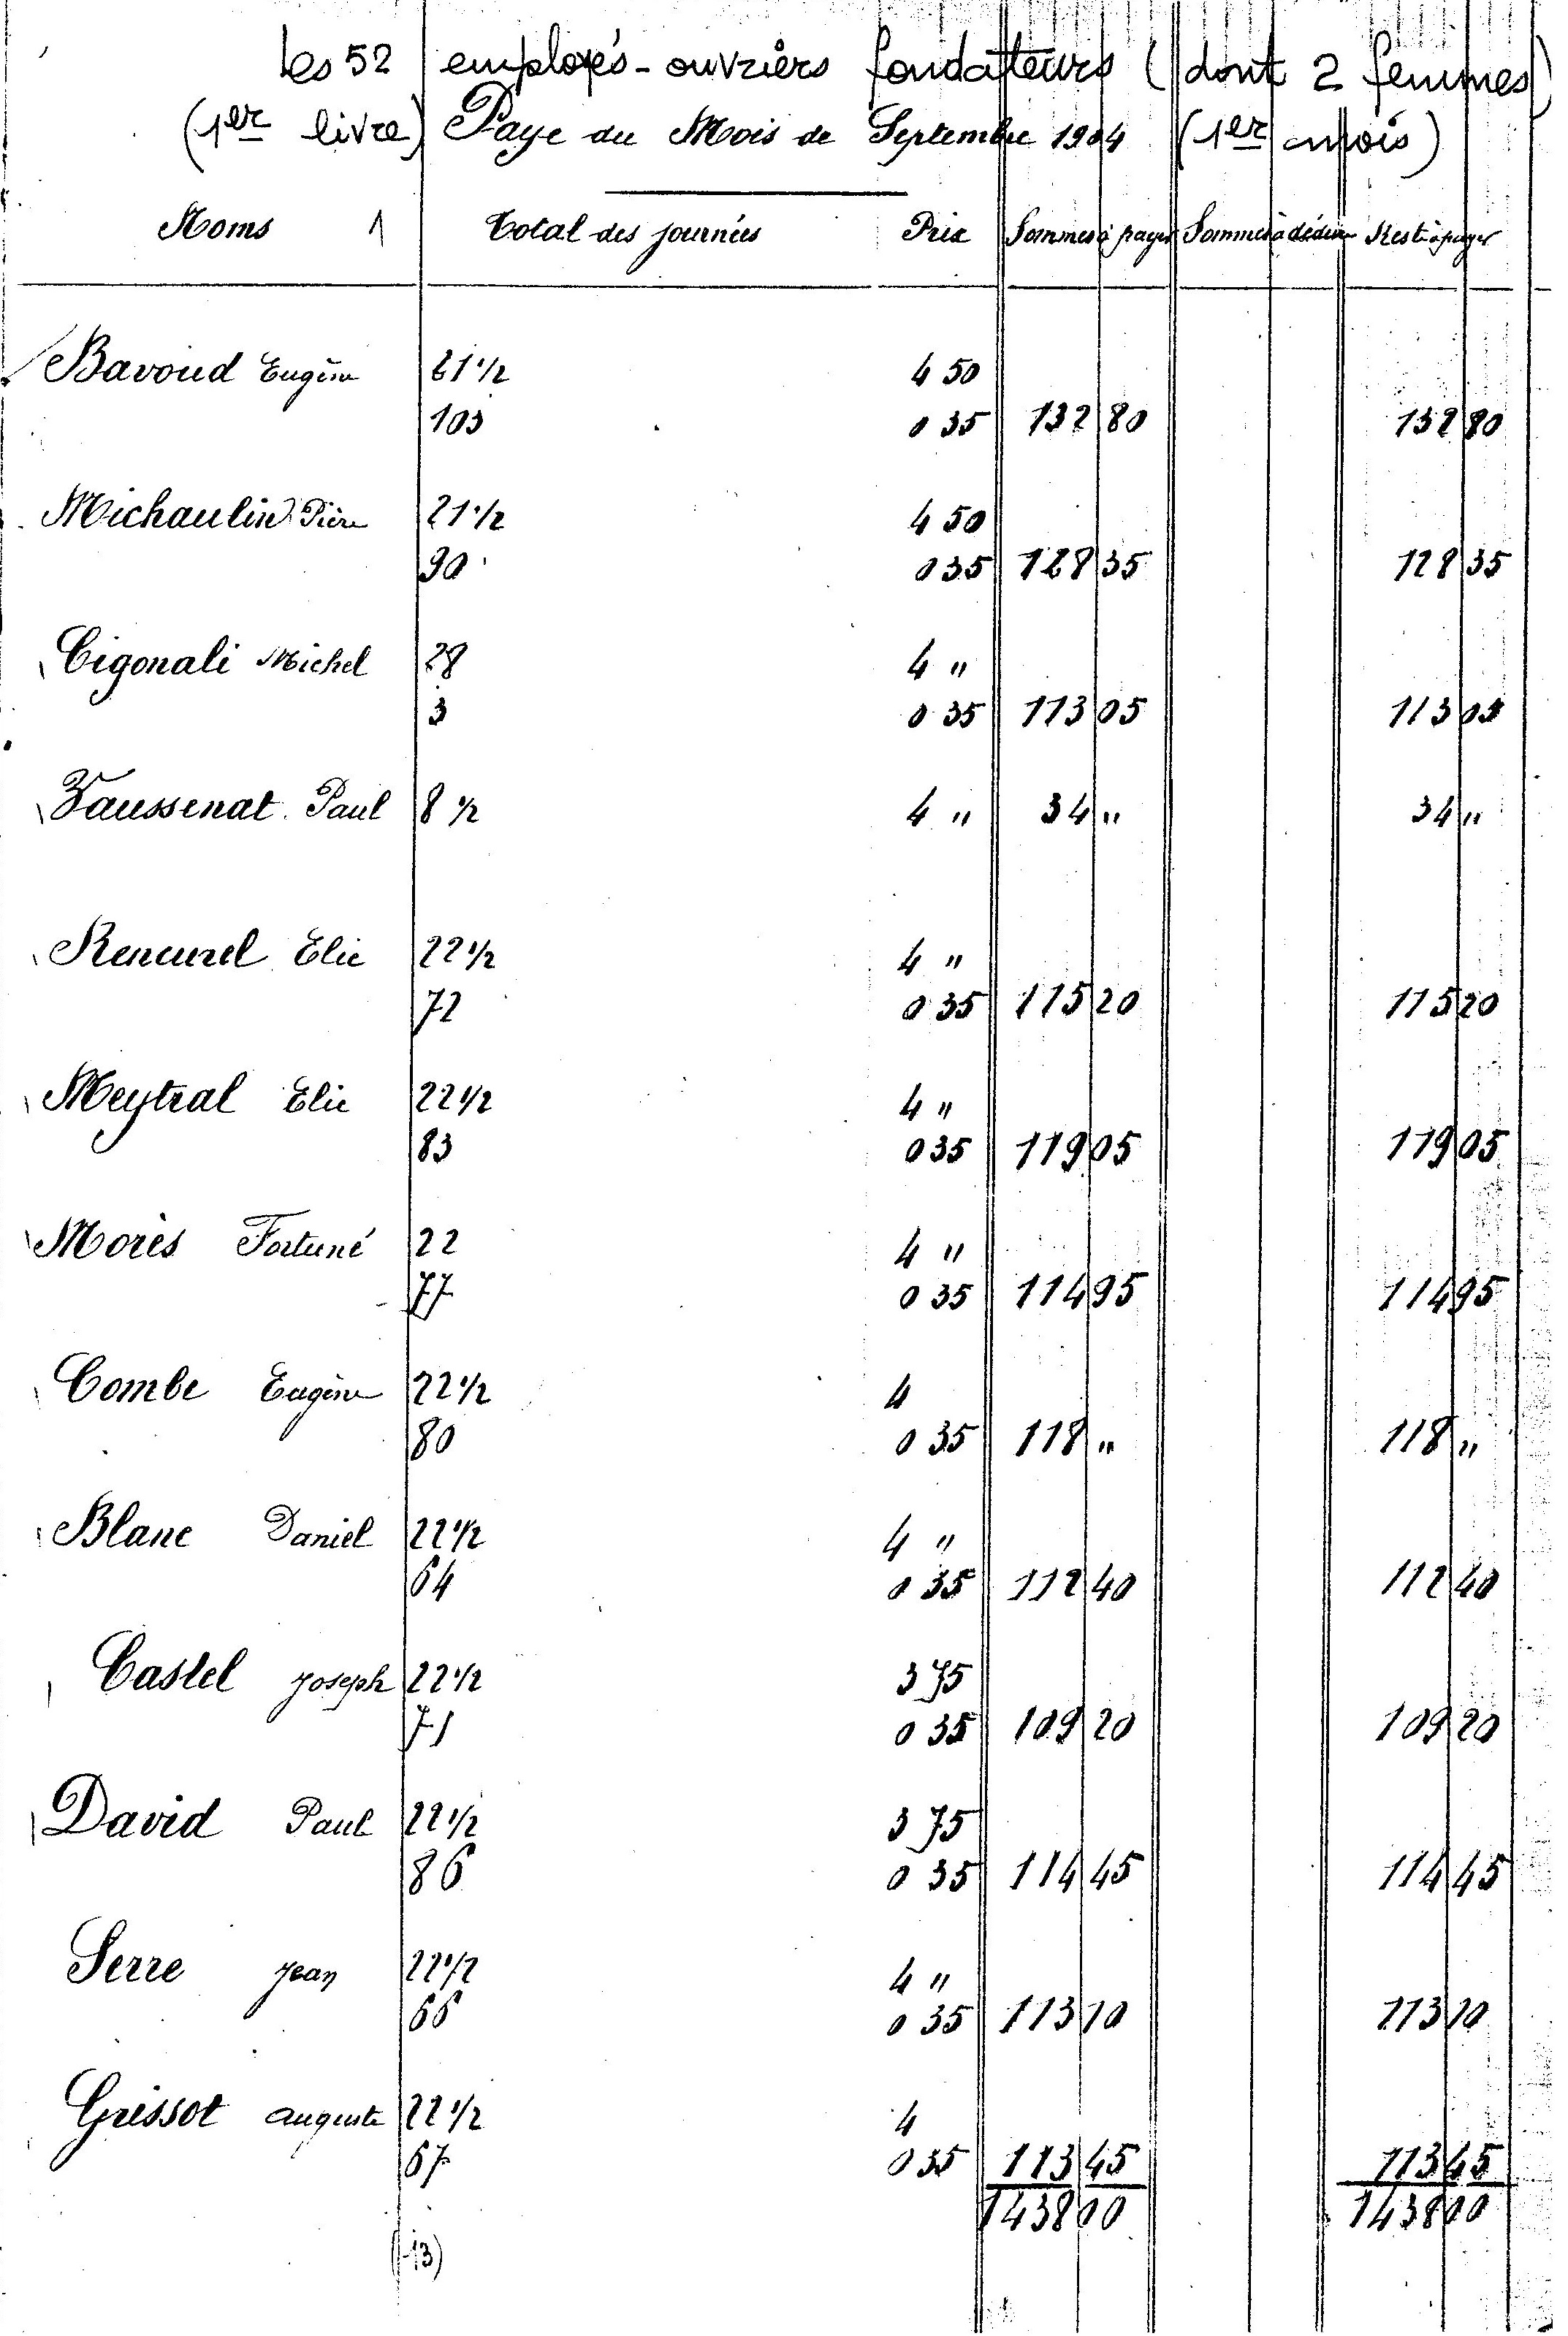 les 52 employés-ouvriers fondatteurs (dont 2 femmes)
(1er livre) Paye du Mois de Septembre 1904 (1er mois)
Noms 1 Total des journées Prix Sommes à payer Sommes à déduire Reste à payer
Bavoud Eugène 21 1/2 4 50
103 0 35 132 80 132 80
Michaulin Pierre 21 1/2 4 50
90 0 35 128 35 128 35
Cigonali Michel 28 4 "
3 0 35 113 05 113 05
Faussenat Paul 8 1/2 4 " 34 " 34 "
Rencurel Elie 22 1/2 4 "
72 0 35 115 20 115 20
Meytral Elie 22 1/2 4 "
83 0 35 119 05 119 05
Morès Fortuné 22 4 "
77 0 35 114 95 114 95
Combe Eugène 22 1/2 4
80 0 35 118 " 118 "
Blanc Daniel 22 1/2 4 "
64 0 35 112 40 112 40
Castel Joseph 22 1/2 3 75
71 0 35 109 20 109 20
David Paul 22 1/2 3 75
86 0 35 114 45 114 45
Serre Jean 22 1/2 4 "
66 0 35 113 10 113 10
Grissot Auguste 22 1/2 4
67 0 35 113 45 113 45
1438 00 1438 00
(13)